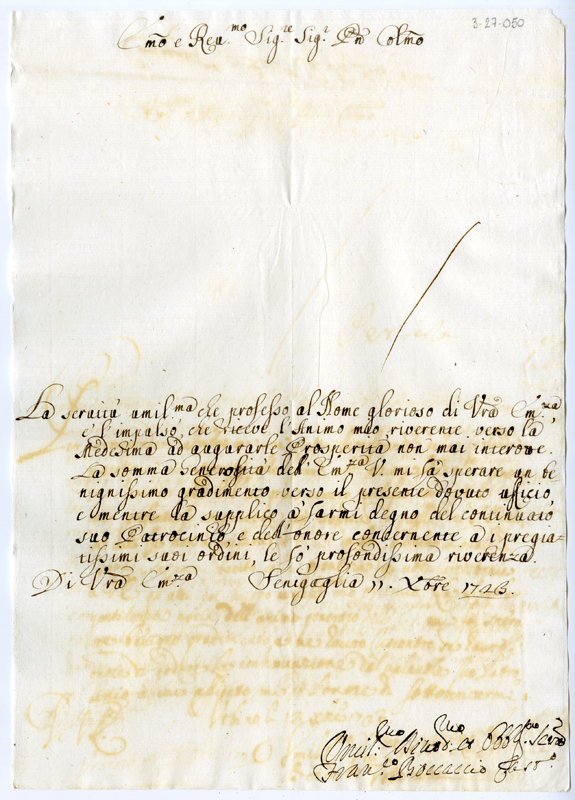 3-27-050
Em̃o e Reu.mo Sig.re Sig.r Pñ Colm̃o
La seruitù umil.ma che professo al Nome glorioso di Vrã Em.za,
e l'impulso, che riceve l'Animo mio riverente verso la
Medesima ad augurarle Prosperità non mai interrotte.
La somma generosità dell'Em.za V. mi fà sperare un be
nignissimo gradimento verso il presente dovuto ufficio,
e mentre la supplico à farmi degno del continuato
suo Patrocinio, e dell'onore concernente a i pregia-
tissimi suoi ordini, le fò profondissima riverenza.
Di Vrã Em.za Senigaglia 11. Xbre 1723.
Umil.mo Divot.mo et Obblg.mo Serv.
Fran.co Boccaccio